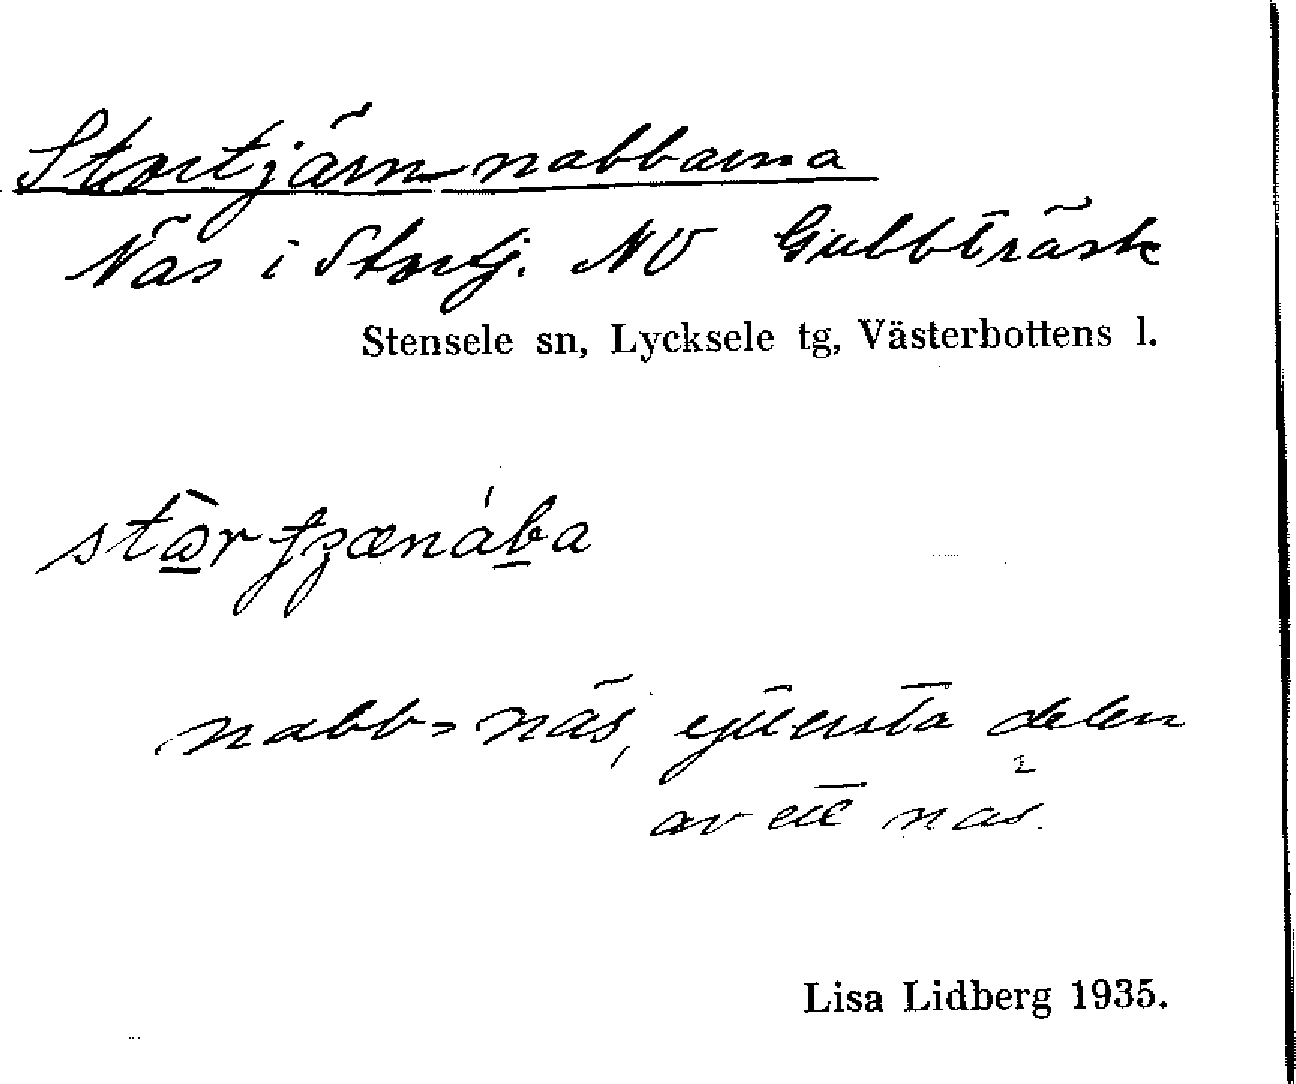 Stortjärn-nabbarna
Näs i Stortj. NV Gubbträsk
Stensele sn, Lycksele tg, Västerbottens l.
nabb = näs, yttersta delen
av ett näs.
Lisa Lidberg 1935.